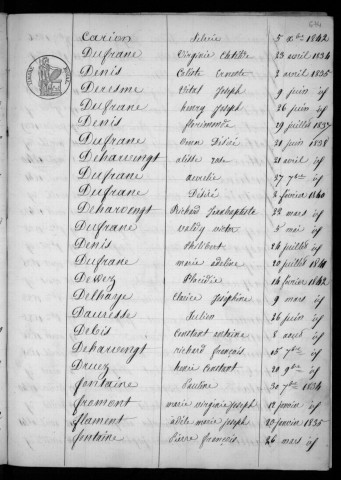 Carion Silvie 5 Xbre 1842
Dufrane Virginie Clotilde 23 avril 1834
Denis Celeste Erneste 2 avril 1835
Deresme Vital Joseph 9 juin if
Dufrane henry Joseph 26 juin if
Denis florimonde 29 juillet 1837
Dufrane Omer Désiré 21 juin 1838
Deharvengt alidde rose 21 avril if
Dufrane aurelie 27 7bre if
Dufrane Désiré 2 février 1840
Deharvengt Richard Jeanbaptiste 28 mars if
Dufrane valéry victor 5 mai if
Denis Philibert 26 juillet if
Dufrane marie adeline 20 juillet 1841
Dewez Placidie 14 février 1842
Delhaye Clarice Joséphine 9 mars if
Dauresse Julien 26 juin if
Debis Constant antoine 8 aout if
Deharvengt richard françois 15 7bre if
Druez henri Constant 20 9bre if
fontaine Pauline 30 7bre 1834
fromont marie virginie Joseph 12 janvier if
flament adèle marie Joseph 20 janvier 1835
fontaine Pierre françois 26 mars if